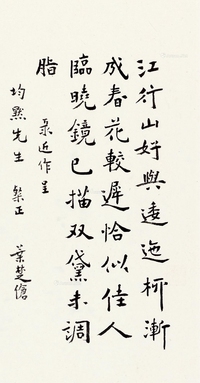 江行山好與逶迤柳漸
成春花較遲恰似佳人
臨曉鏡已描双黛未調
脂
录近作呈
均默先生 棃正
葉楚傖